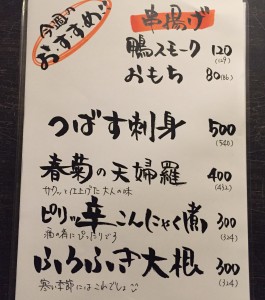 今週のおすすめ
串揚げ
鴨スモーク 120
(129)
おもち 80(86)
つばす刺身 500
(540)
春菊の天婦羅 400
サクッと仕上げた大人の味 (432)
ピリッ辛こんにゃく煮 300
酒の肴にぴったりです (324)
ふろふき大根 300
寒い季節にはこれでしょ (324)